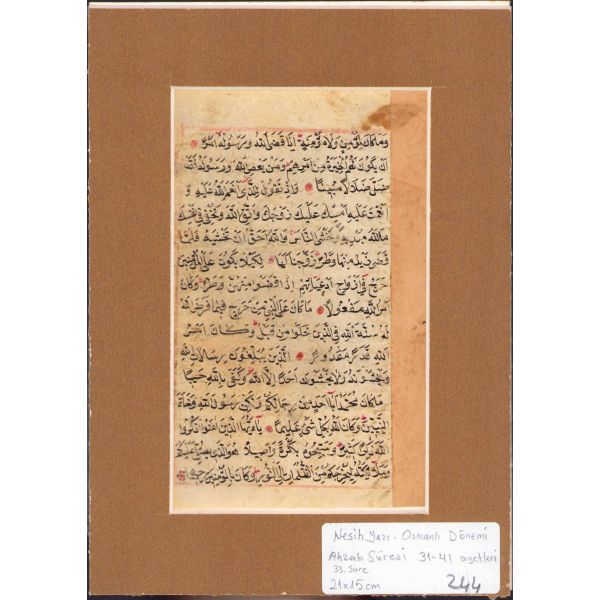 وما كان لمؤمن ولا مؤمنة اذا قضى الله ورسوله امرا
ان يكون لهم الخيرة من امرهم ومن يعص الله ورسوله فقد
ضل ضلالا مبينا واذ تقول للذى انعم الله عليه و
انعمت عليه امسك عليك زوجك واتق الله وتخفى فى نفسك
ما الله مبديه وتخشى الناس والله احق ان تخشيه فلما
قضى زيد منها وطرا زوجناكها لكيلا يكون على المؤمنين
حرج فى ازواج ادعيائهم اذا قضوا منهن وطرا وكان
امر الله مفعولا ما كان على النبى من حرج فيما فرض الله
له سنة الله فى الذين خلوا من قبل وكان امر
الله قدرا مقدورا الذين يبلغون رسالات الله
ويخشونه ولا يخشون احدا الا الله وكفى بالله حسيبا
ما كان محمد ابا احد من رجالكم ولكن رسول الله وخاتم
النبيين وكان الله بكل شئ عليما يا ايها الذين امنوا اذكروا
الله ذكرا كثيرا وسبحوه بكرة واصيلا هو الذى يصلى عليكم
وملائكته ليخرجكم من الظلمات الى النور وكان بالمؤمنين رحيما
Nesih Yazı - Osmanlı Dönemi
Ahzab Sûresi 31-41 ayetleri
33. Sure
21x15 cm 244